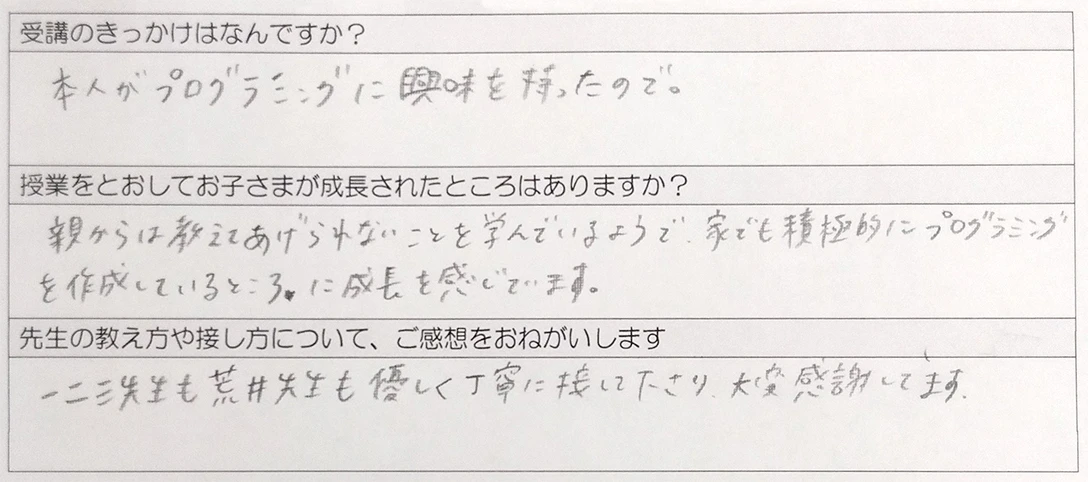 受講のきっかけはなんですか？
本人がプログラミングに興味を持ったので。
授業をとおしてお子さまが成長されたところはありますか？
親からは教えてあげられないことを学んでいるようで、家でも積極的にプログラミング
を作成しているところに成長を感じています。
先生の教え方や接し方について、ご感想をおねがいします
一二三先生も荒井先生も優しく丁寧に接して下さり、大変感謝してます。